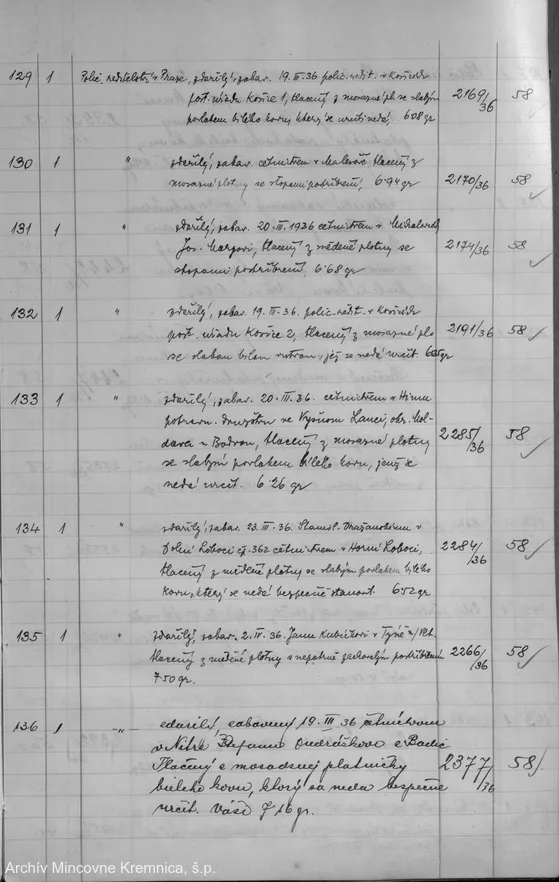 129 1 Polic. ředitelství v Praze, zdařilý, zabav. 19.III.36 polic. ředit. v Košicích
post. úřadu Košice 1, tlačený z mosazné pl. se slabým 2169/36 58
povlakem bílého kovu, který se neurčí nedá, 6·08 gr
130 1 " zdařilý, zabav. četnictvem v tlačený z
mosazné plotny se stopami postříbření, 6·94 gr 2170/36 58
131 1 " zdařilý, zabav. 20.III.1936 četnictvem v
Jos. tlačený z měděné plotny se 2174/36 58
stopami postříbření, 6·68 gr
132 1 " zdařilý, zabav. 19.III.36 polic. ředit. v Košicích
post. úřadu Košice 2, tlačený z mosazné plo 2191/36 58
se slabou bílou jej se nedá určit. gr
133 1 " zdařilý, zabav. 20.III.36. četnictvem v
potravn. družstvu ve Vyšnom Lanci, okr. Mol-
dava n. Bodvou, tlačený z mosazné plotny 2285/36 58
se slabým povlakem bílého kovu, jenž se
nedá určit. 6·26 gr
134 1 " zdařilý, zabav. 23.III.36.
Dolní čj. 362 četnictvem v Horní
tlačený z měděné plotny se slabým povlakem bílého 2284/36 58
kovu, který se nedá bezpečně stanovit. 6·52 gr
135 1 " zdařilý, zabav. 2.IV.36 Janu v Týně n/Vlt.
tlačený z měděné plotny s nepatrně postříbřením 2266/36 58
7·50 gr.
136 1 -"- zdarilý, zabavený 19.III.36 četníctvom
v Nitre Štefanovi Ondráškovi z
Tlačený z mosadznej platničky 2377/36 58
bieleho kovu, ktorý sa nedá bezpečne
určiť. Váži 7·16 gr.
Archív Mincovne Kremnica, š.p.